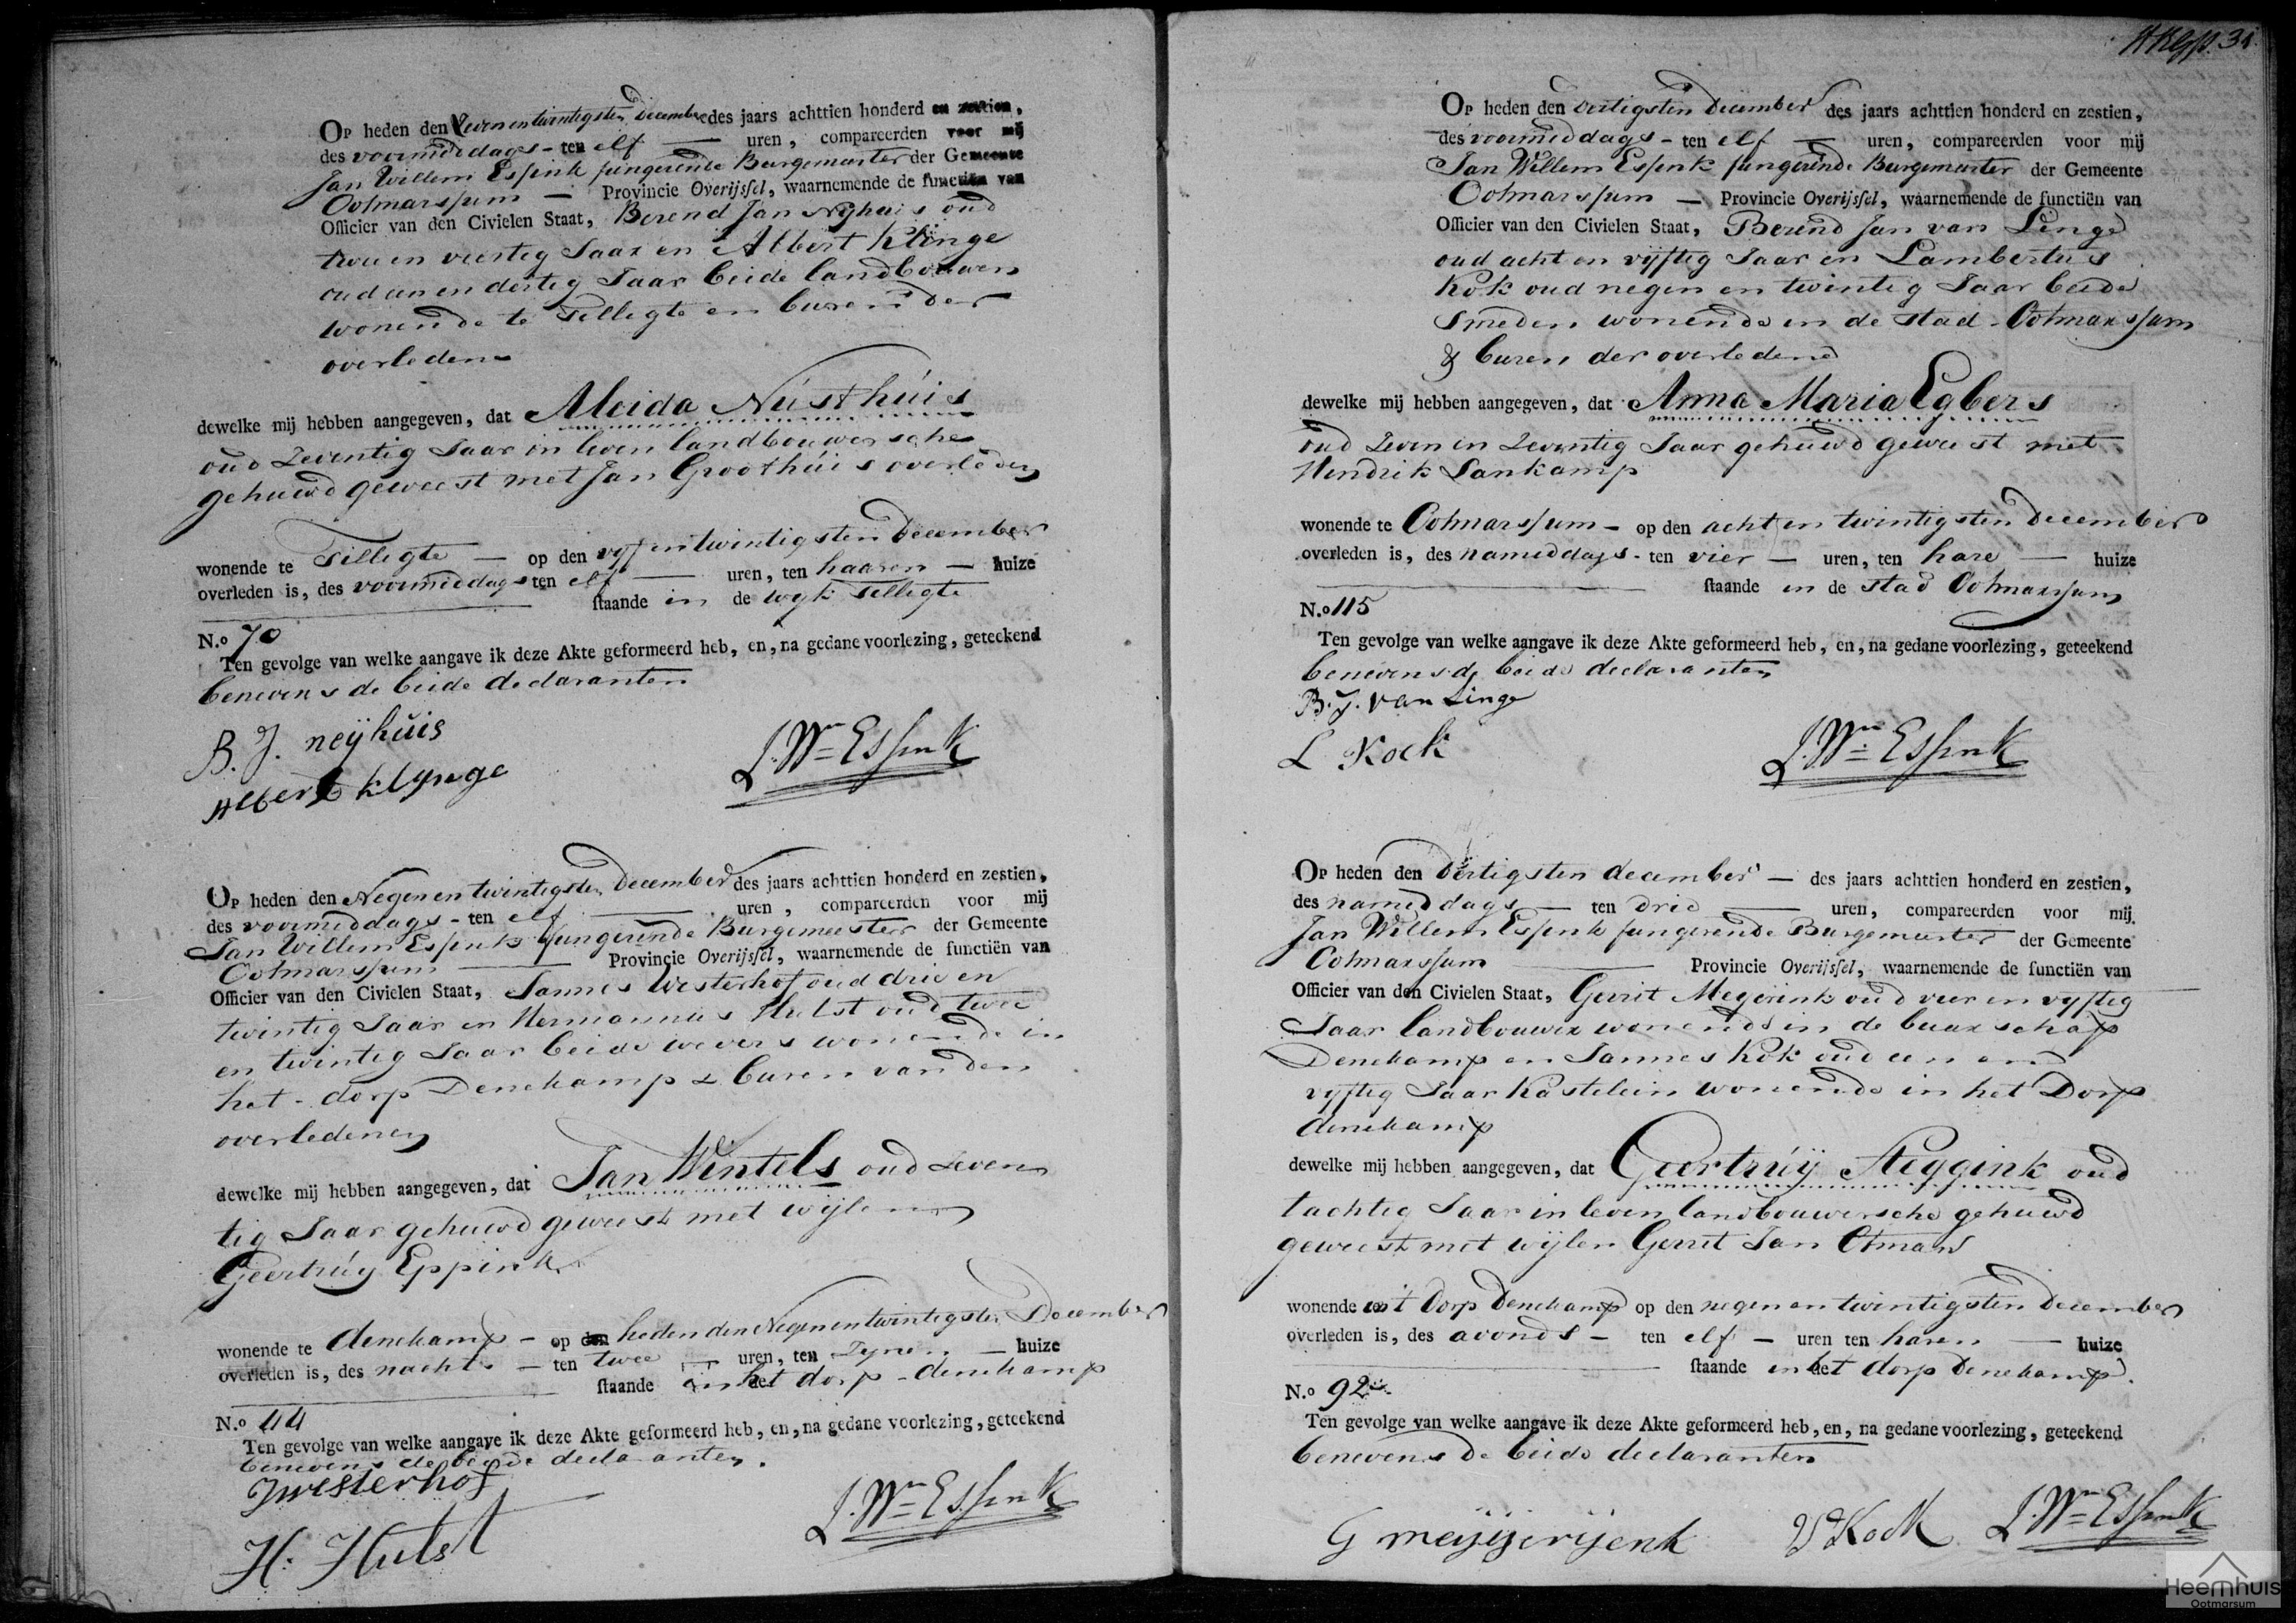 Op heden den Zevenentwintigsten December des jaars achttien honderd en zestien,
des voormiddags - ten elf — uren, compareerden voor mij
Jan Willem Essink fungerende Burgemeester der Gemeente
Ootmarssum — Provincie Overijssel, waarnemende de functiën van
Officier van den Civielen Staat, Berend Jan Nyhuis oud
twee en veertig Jaar en Albert Klinge
oud een en dertig Jaar beide landbouwers
wonende te Tillegte en buren der
overleden
dewelke mij hebben aangegeven, dat Aleida Nústhúis
oud Zeventig Jaar in leven landbouwersche
gehuwd geweest met Jan Groothúis overleden
wonende te Tillegte — op den vyfentwintigsten December
overleden is, des voormiddags ten elf — uren, ten haaren — huize
staande in de wyk Tillegte
N.o 70
Ten gevolge van welke aangave ik deze Akte geformeerd heb, en, na gedane voorlezing, geteekend
benevens de beide declaranten
B. J. neijhuis
Albert klynge
J. Wm Essink
Op heden den Negenentwintigsten December des jaars achttien honderd en zestien,
des voormiddags - ten elf — uren, compareerden voor mij
Jan Willem Essink fungerende Burgemeester der Gemeente
Ootmarssum — Provincie Overijssel, waarnemende de functiën van
Officier van den Civielen Staat, Jannes Westerhof oud drie en
twintig Jaar en Hermannus Hulst oud twee
en twintig Jaar beide wevers wonende in
het dorp Denekamp & buren van den
overledenen
dewelke mij hebben aangegeven, dat Jan Wintels oud Zeven
tig Jaar gehuwd geweest met wijlen
Geertrúy Eppink
wonende te denekamp - op den heden den Negenentwintigsten December
overleden is, des nachts - ten twee — uren, ten Zynen — huize
staande in het dorp - denekamp
N.o 44
Ten gevolge van welke aangave ik deze Akte geformeerd heb, en, na gedane voorlezing, geteekend
benevens de beide declaranten.
J westerhof
H. Hulst
J. Wm Essink
31.
Op heden den dertigsten December des jaars achttien honderd en zestien,
des voormiddags - ten elf — uren, compareerden voor mij
Jan Willem Essink fungerende Burgemeester der Gemeente
Ootmarssum — Provincie Overijssel, waarnemende de functiën van
Officier van den Civielen Staat, Berend Jan van Linge
oud acht en vyftig Jaar en Lambertus
Kok oud negen en twintig Jaar beide
Smeden wonende in de stad - Ootmarssum
& buren der overledene
dewelke mij hebben aangegeven, dat Anna Maria Egbers
oud Zeven en Zeventig Jaar gehuwd geweest met
Hendrik Lankamp
wonende te Ootmarssum - op den acht en twintigsten December
overleden is, des nameddags - ten vier — uren, ten hare — huize
staande in de stad Ootmarssum
N.o 115
Ten gevolge van welke aangave ik deze Akte geformeerd heb, en, na gedane voorlezing, geteekend
benevens de beide declaranten
B. J. van Linge
L Kock
J. Wm Essink
Op heden den dertigsten december — des jaars achttien honderd en zestien,
des nameddags — ten drie — uren, compareerden voor mij
Jan Willem Essink fungerende Burgemeester der Gemeente
Ootmarssum — Provincie Overijssel, waarnemende de functiën van
Officier van den Civielen Staat, Gerrit Megerink oud vier en vyftig
Jaar landbouwer wonende in de buurschap
Denekamp en Jannes Kok oud een en
vyftig Jaar Kastelein wonende in het Dorp
denekamp
dewelke mij hebben aangegeven, dat Geertrúÿ Steggink oud
tachtig Jaar in leven landbouwersche gehuwd
geweest met wijlen Gerrit Jan Otman
wonende int Dorp Denekamp op den negen en twintigsten December
overleden is, des avonds - ten elf — uren ten haren — huize
staande in het dorp Denekamp.
N.o 92
Ten gevolge van welke aangave ik deze Akte geformeerd heb, en, na gedane voorlezing, geteekend
benevens de beide declaranten
G meijgerijenk
Kock
J. Wm Essink
Heemhuis
Ootmarsum